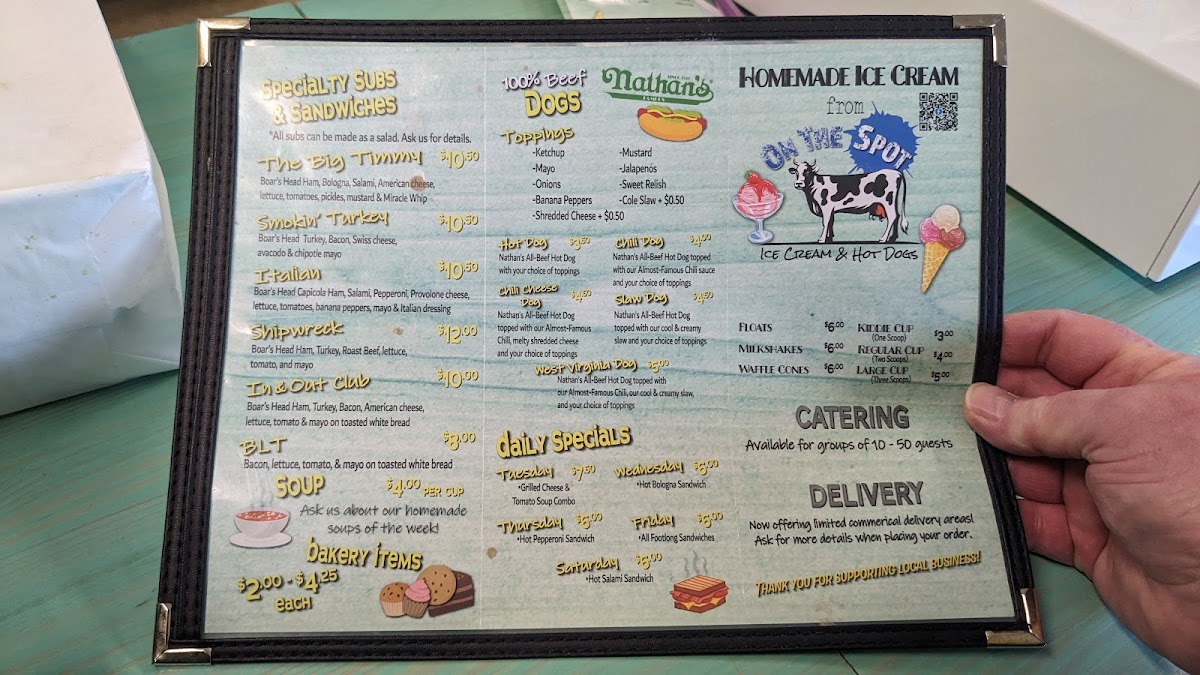 Specialty Subs
& Sandwiches
*All subs can be made as a salad. Ask us for details.
The Big Timmy $10.50
Boar's Head Ham, Bologna, Salami, American cheese,
lettuce, tomatoes, pickles, mustard & Miracle Whip
Smokin' Turkey $10.50
Boar's Head Turkey, Bacon, Swiss cheese,
avacodo & chipotle mayo
Italian $10.50
Boar's Head Capicola Ham, Salami, Pepperoni, Provolone cheese,
lettuce, tomatoes, banana peppers, mayo & Italian dressing
Shipwreck $12.00
Boar's Head Ham, Turkey, Roast Beef, lettuce,
tomato, and mayo
In & Out Club $10.00
Boar's Head Ham, Turkey, Bacon, American cheese,
lettuce, tomato & mayo on toasted white bread
BLT $8.00
Bacon, lettuce, tomato, & mayo on toasted white bread
Soup $4.00 per cup
Ask us about our homemade
soups of the week!
Bakery Items
$2.00 - $4.25
each
100% Beef
Dogs
Nathan's
Famous
Toppings
-Ketchup
-Mayo
-Onions
-Banana Peppers
-Shredded Cheese + $0.50
-Mustard
-Jalapenos
-Sweet Relish
-Cole Slaw + $0.50
Hot Dog $3.50
Nathan's All-Beef Hot Dog
with your choice of toppings
Chili Dog $4.00
Nathan's All-Beef Hot Dog topped
with our Almost-Famous Chili sauce
and your choice of toppings
Chili Cheese
Dog $4.50
Nathan's All-Beef Hot Dog
topped with our Almost-Famous
Chili, melty shredded cheese
and your choice of toppings
Slaw Dog $4.50
Nathan's All-Beef Hot Dog
topped with our cool & creamy
slaw and your choice of toppings
West Virginia Dog $5.00
Nathan's All-Beef Hot Dog topped with
our Almost-Famous Chili, our cool & creamy slaw,
and your choice of toppings
Daily Specials
Tuesday $7.50
*Grilled Cheese &
Tomato Soup Combo
Wednesday $6.00
*Hot Bologna Sandwich
Thursday $6.00
*Hot Pepperoni Sandwich
Friday $6.00
*All Footlong Sandwiches
Saturday $6.00
*Hot Salami Sandwich
Homemade Ice Cream
from
On The Spot
Ice Cream & Hot Dogs
Floats $6.00
Milkshakes $6.00
Waffle Cones $6.00
Kiddie Cup $3.00
(One Scoop)
Regular Cup $4.00
(Two Scoops)
Large Cup $5.00
(Three Scoops)
Catering
Available for groups of 10 - 50 guests
Delivery
Now offering limited commerical delivery areas!
Ask for more details when placing your order.
Thank you for supporting local business!